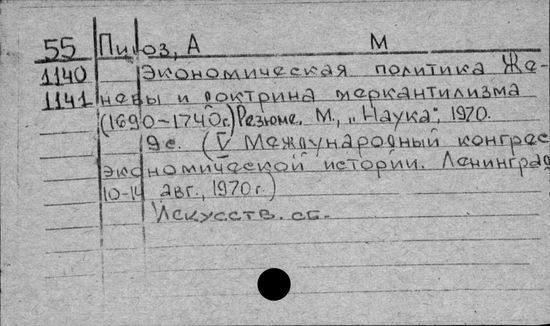 55 Пиоз, А М
1140 Экономическая политика Же-
1141 невы и доктрина меркантилизма
(1690-1740г.) Резюме. М., „Наука", 1970.
9с. (V Международный конгрес
экономической истории. Ленинград
10-14 авг., 1970г.)
Искусств. сб.